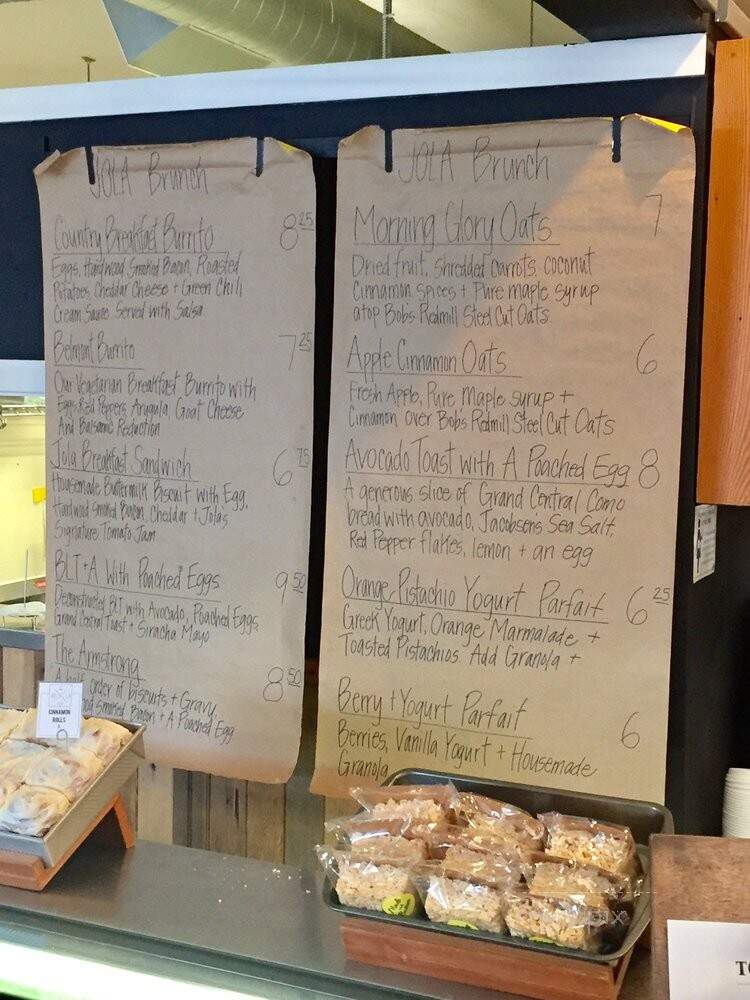 JOLA Brunch
Country Breakfast Burrito 8 25
Eggs, Hardwood Smoked Bacon, Roasted
Potatoes, Cheddar Cheese + Green Chili
Cream Sauce Served with Salsa
Belmont Burrito 7 25
Our Vegetarian Breakfast Burrito with
Eggs, Red Peppers, Arugula, Goat Cheese
And Balsamic Reduction
Jola Breakfast Sandwich 6 75
Housemade Buttermilk Biscuit with Egg,
Hardwood Smoked Bacon, Cheddar + Jola's
Signature Tomato Jam
BLT+A With Poached Eggs 9 50
Deconstructed BLT with Avocado, Poached Eggs
Grand Central Toast + Siracha Mayo
The Armstrong 8 50
A half order of biscuits + Gravy
Smoked Bacon + A Poached Egg
JOLA Brunch
Morning Glory Oats 7
Dried fruit, shredded carrots, coconut
Cinnamon spices + Pure maple syrup
atop Bobs Redmill Steel Cut Oats
Apple Cinnamon Oats 6
Fresh Apple, Pure Maple syrup +
Cinnamon over Bob's Redmill Steel Cut Oats
Avocado Toast with A Poached Egg 8
A generous slice of Grand Central Como
bread with avocado, Jacobsens Sea Salt,
Red Pepper flakes, lemon + an egg
Orange Pistachio Yogurt Parfait 6 25
Greek Yogurt, Orange Marmalade +
Toasted Pistachios Add Granola +
Berry + Yogurt Parfait 6
Berries, Vanilla Yogurt + Housemade
Granola
CINNAMON
ROLLS